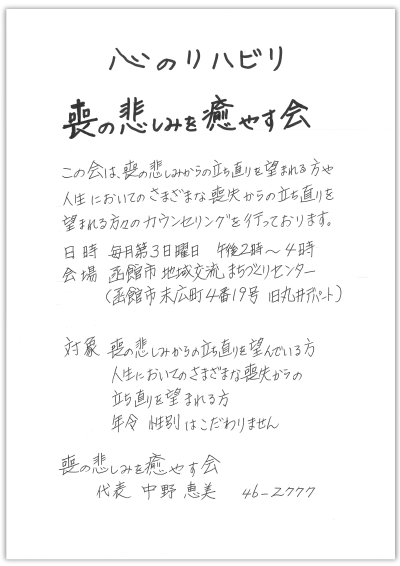 心のリハビリ
喪の悲しみを癒やす会
この会は、喪の悲しみからの立ち直りを望まれる方や
人生においてのさまざまな喪失からの立ち直りを
望まれる方々のカウンセリングを行っております。
日時 毎月第3日曜日 午後2時〜4時
会場 函館市地域交流まちづくりセンター
(函館市末広町4番19号 旧丸井デパート)
対象 喪の悲しみからの立ち直りを望んでいる方
人生においてのさまざまな喪失からの
立ち直りを望まれる方
年令 性別はこだわりません
喪の悲しみを癒やす会
代表 中野恵美 46-2777